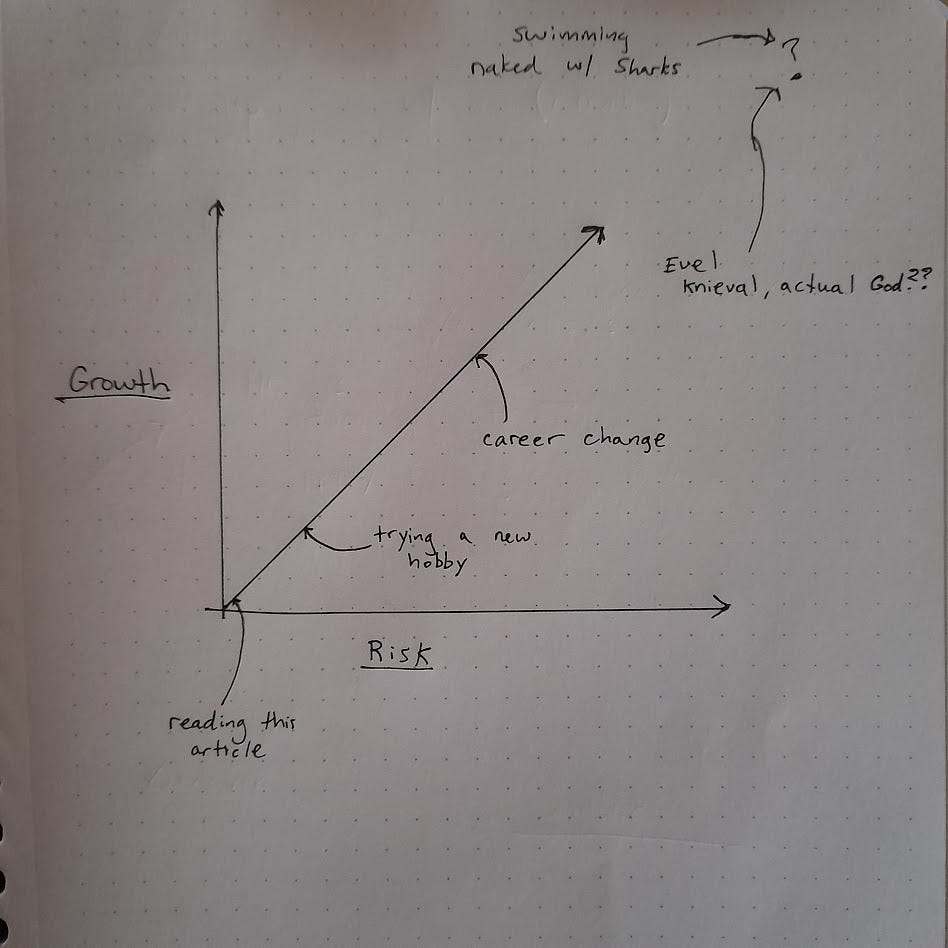 swimming
naked w/ sharks
?
Evel
Knieval, actual God??
Growth
career change
trying a new
hobby
Risk
reading this
article